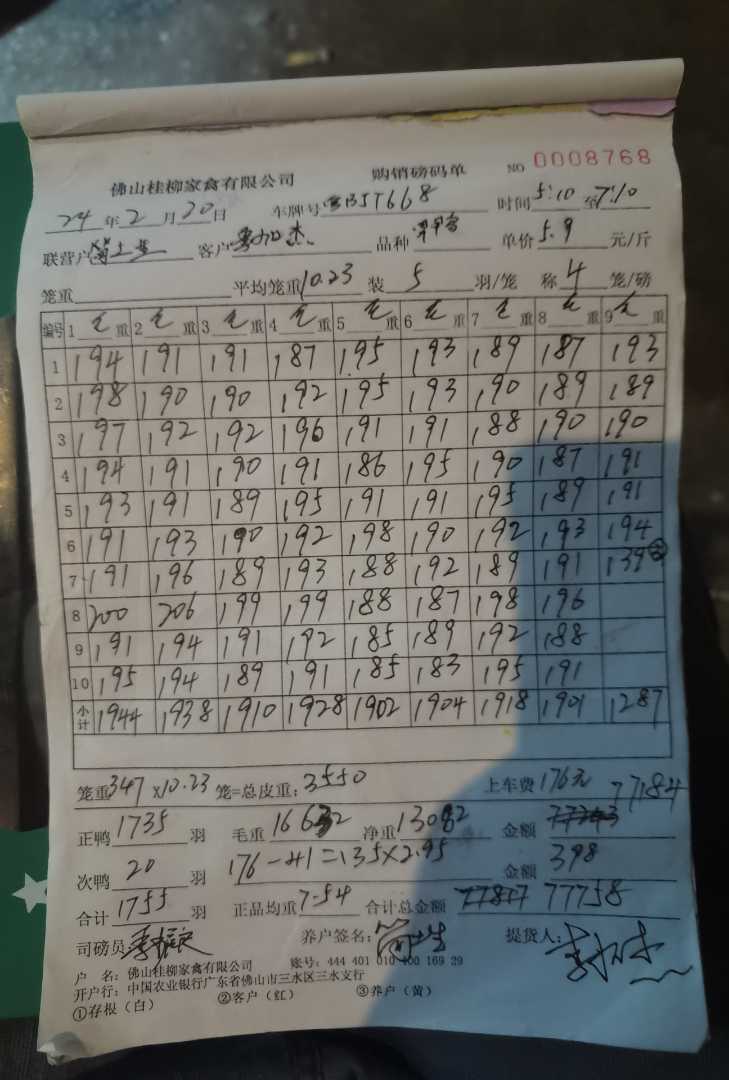 佛山桂柳家禽有限公司 购销磅码单 NO 0008768
24 年 2 月 20 日 车牌号 T668 时间 5:10 至 7:10
联营户 客户 品种 单价 5.9 元/斤
笼重 平均笼重 10.23 装 5 羽/笼 称 4 笼/磅
编号 1 毛重 2 毛重 3 毛重 4 毛重 5 毛重 6 毛重 7 毛重 8 毛重 9 毛重
1 194 191 191 187 195 193 189 187 193
2 198 190 190 192 195 193 190 189 189
3 197 192 192 196 191 191 188 190 190
4 194 191 190 191 186 195 190 187 191
5 193 191 189 195 191 191 195 189 191
6 191 193 190 192 198 190 192 193 194
7 191 196 189 193 188 192 189 191 139
8 200 206 199 199 188 187 198 196
9 191 194 191 192 185 189 192 188
10 195 194 189 191 185 183 195 191
小计 1944 1938 1910 1928 1902 1904 1918 1901 1287
笼重 347 ×10.23 笼=总皮重: 3550 上车费 176元 77184
正鸭 1735 羽 毛重 16632 净重 13082 金额
次鸭 20 羽 176-41=135×2.95 金额 398
合计 1755 羽 正品均重 7.54 合计总金额 77758
司磅员: 养户签名: 提货人:
户 名: 佛山桂柳家禽有限公司 账号: 444 401 010 400 169 29
开户行: 中国农业银行广东省佛山市三水区三水支行
①存根（白） ②客户（红） ③养户（黄）